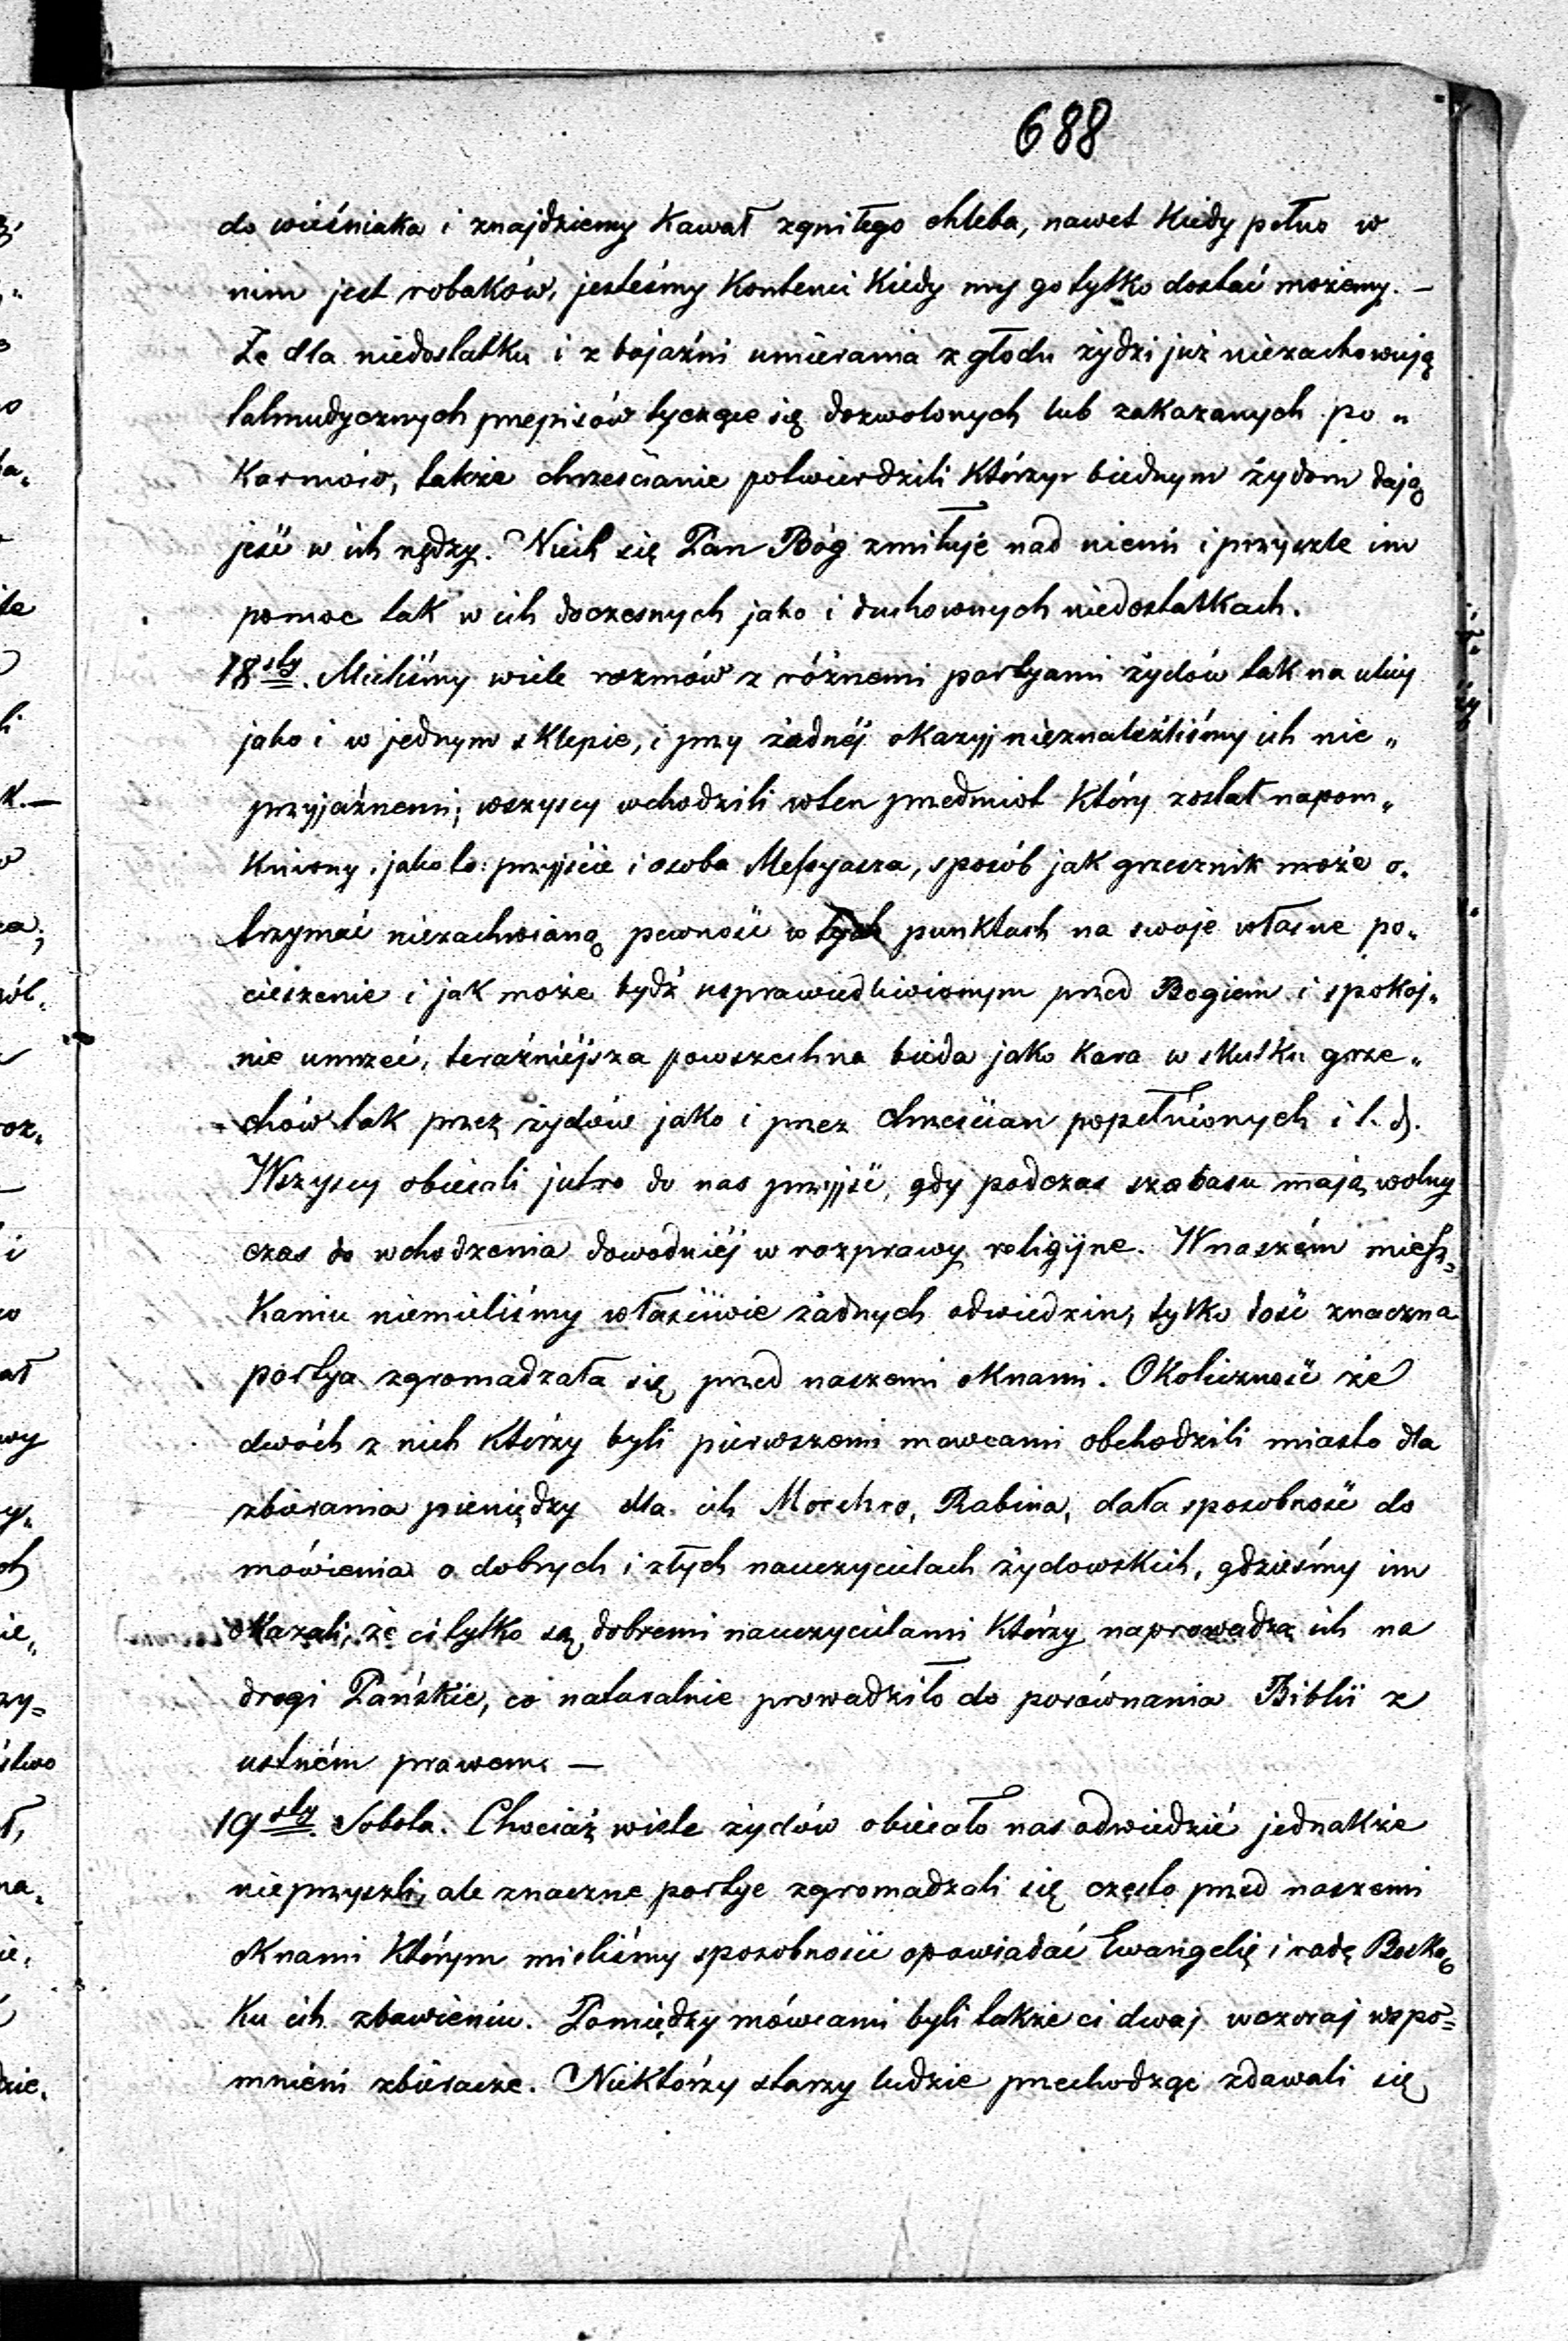 688
do wieśniaka i znajdziemy kawał zgniłego chleba, nawet kiedy pełno w
nim jest robaków, jesteśmy kontenci kiedy my go tylko dostać możemy. —
Że dla niedostatku i z bojaźni umierania z głodu żydzi już niezachowują
talmudycznych przepisów tycząc się dozwolonych lub zakazanych po„
karmów, także chrześcianie potwierdzili którzy biednym żydom dają
jeść w ich nędzy. Niech się Pan Bóg zmiłuje nad niemi i przyszle im
pomoc tak w ich doczesnych jako i duchownych niedostatkach.
18sty. Mieliśmy wiele rozmów z różnemi partyami żydów tak na ulicy
jako i w jednym sklepie, i przy żadnéj okazyj nieznaleźliśmy ich nie„
przyjaźnemi; wszyscy wchodzili wten przedmiot który został napom„
kniony, jako to: przyjście i osoba Messyasza, sposób jak grzesznik może o„
trzymać niezachwianą pewność w tych punktach na swoje własne po„
cieszenie i jak może bydź usprawiedliwionym przed Bogiem i spokoj„
nie umrzeć, teraźniejsza powszechna bieda jako kara w skutku grze„
chów tak przez żydów jako i przez chrześcian popełnionych i t. d.
Wszyscy obiecali jutro do nas przyjść, gdy podczas szabasu mają wolny
czas do wchodzenia dowodniéj w rozprawy religijne. W naszém miesz„
kaniu niemieliśmy właściwie żadnych odwiedzin, tylko dość znaczna
partya zgromadzała się przed naszemi oknami. Okoliczność że
dwóch z nich którzy byli pierwszemi mowcami obchodzili miasto dla
zbierania pieniędzy dla ich Morehro, Rabina, dała sposobność do
mówienia o dobrych i złych nauczycielach żydowskich, gdzieśmy im
okazali, że ci tylko są dobremi nauczycielami którzy naprowadzą ich na
drogi Pańskie, co naturalnie prowadziło do porównania Biblii z
ustném prawem. —
19sty Sobota. Chociaż wiele żydów obiecało nas odwiedzić jednakże
nieprzyszli, ale znaczne partye zgromadzali się często przed naszemi
oknami którym mieliśmy sposobność opowiadać Ewangelię i radę Boską
ku ich zbawieniu. Pomiędzy mówcami byli także ci dwaj wczoraj wspo=
mnieni zbieracze. Niektórzy starzy ludzie przechodząc zdawali się